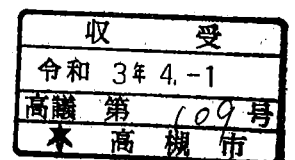 収 受
令和 3年 4.-1
高議 第 109号
★ 高槻市